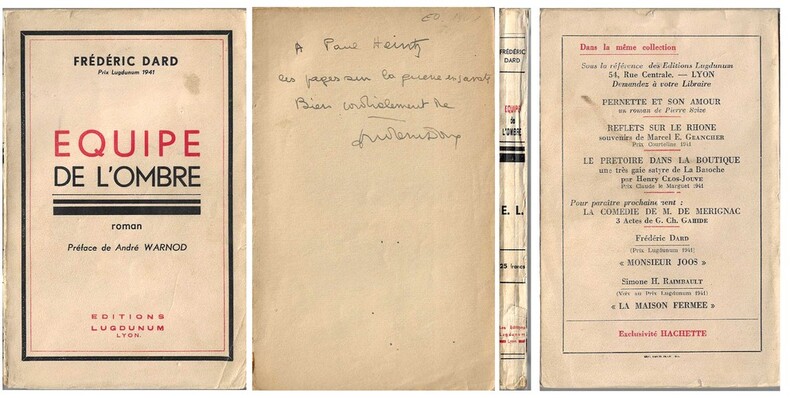 FRÉDÉRIC DARD
Prix Lugdunum 1941
EQUIPE
DE L'OMBRE
roman
Préface de André WARNOD
EDITIONS
LUGDUNUM
LYON.
A Paul Heintz
ces pages sur la guerre
Bien cordialement de
FRÉDÉRIC
DARD
EQUIPE
de
L'OMBRE
E. L.
25 francs
Les Editions
Lugdunum
Lyon
Dans la même collection
Sous la référence des Editions Lugdunum
54, Rue Centrale. — LYON
Demandez à votre Libraire
PERNETTE ET SON AMOUR
un roman de Pierre Scize
REFLETS SUR LE RHONE
souvenirs de Marcel E. GRANCHER
Prix Courteline 1941
LE PRETOIRE DANS LA BOUTIQUE
une très gaie satyre de La Basoche
par Henry CLOS-JOUVE
Prix Claude le Marguet 1941
Pour paraître prochainement :
LA COMEDIE DE M. DE MERIGNAC
3 Actes de G. Ch. GAHIDE
Frédéric DARD
(Prix Lugdunum 1941)
« MONSIEUR JOOS »
Simone H. RAIMBAULT
(Voix au Prix Lugdunum 1941)
« LA MAISON FERMEE »
Exclusivité HACHETTE